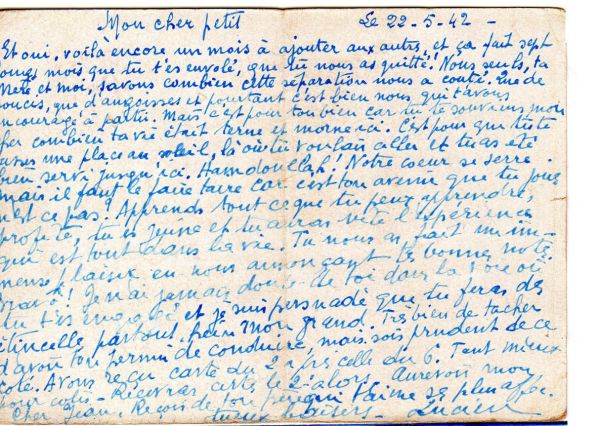 Mon cher petit Le 22-5-42 -
Et oui, voilà encore un mois à ajouter aux autres, et ça fait sept
longs mois que tu t'es envolé, que tu nous as quitté. Nous seuls, ta
Mère et moi, savons combien cette séparation nous a couté. Que de
soucis, que d'angoisses et pourtant c'est bien nous qui t'avons
encouragé à partir. Mais c'est pour ton bien car tu te souviens mon
combien ta vie était terne et morne ici. C'est pour que tu te
une place au soleil, là où tu voulais aller et tu as été
bien servi jusqu'ici. Hamdoullah! Notre coeur se serre
mais il faut le faire taire car c'est ton avenir que tu joues
n'est ce pas. Apprends tout ce que tu peux apprendre,
profite, tu es jeune et tu auras vite l'expérience
qui est tout dans la vie. Tu nous as fait un im-
mense plaisir en nous annonçant tes bonnes notes.
Je n'ai jamais douté de toi dans la voie où
tu t'es engagé et je suis persuadé que tu feras des
étincelles partout, mon grand. Très bien de tacher
d'avoir ton permis de conduire, mais sois prudent de ce
coté. Avons reçu carte du 2 celle du 6. Tant mieux
pour colis - Recevras carte le 2 alors. Aurevoir mon
Cher Jean. Reçois de ton père qui t'aime ses plus affec-
tueux baisers - Lucien